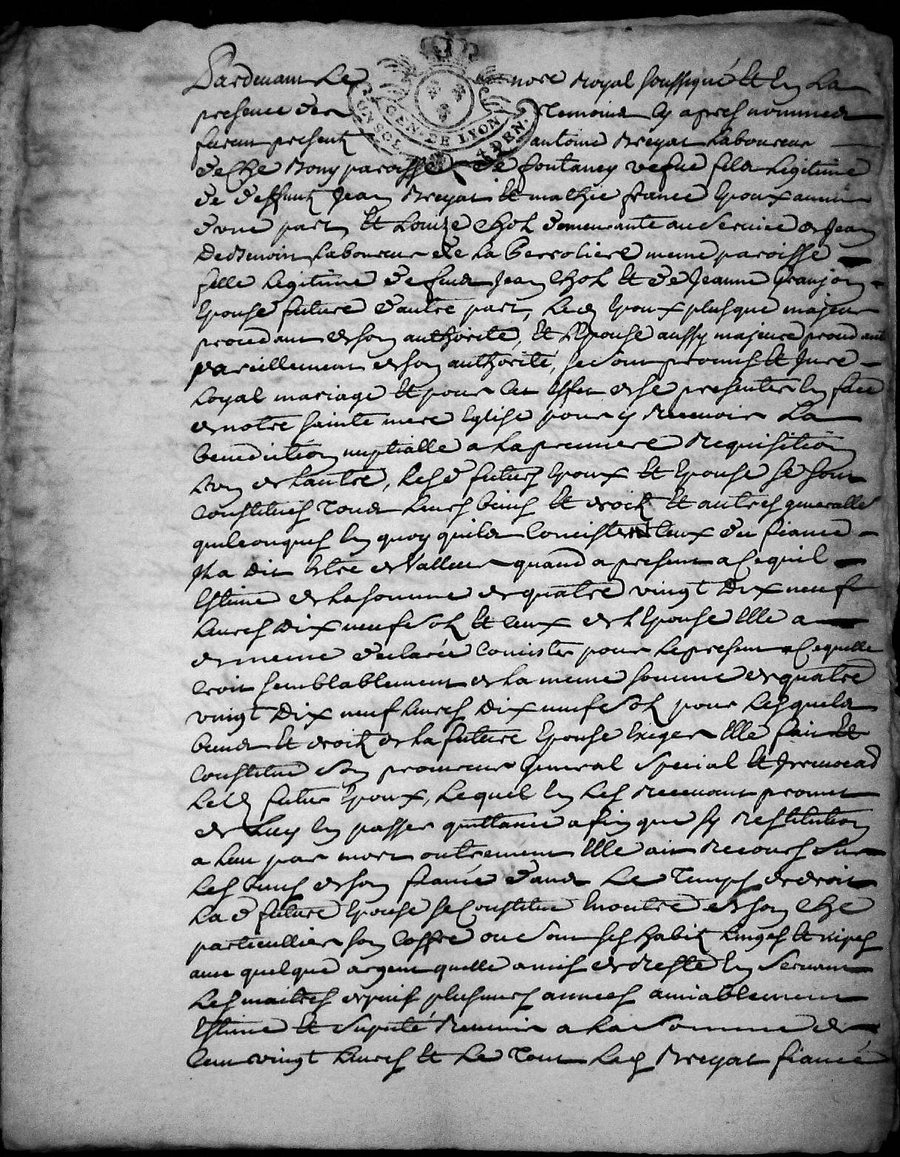 Pardevant Le nore Royal soussigné et en La
presence des Temoins cy apres nommes
furent presents antoine Breyat Laboureur
de chez Bony paroisse de fontaney vefue fils Legitime
de deffunt Jean Breyat et mathie france Epoux
d'une part et Louize Chol demeurante au service de Jean
Laboureur de La Berroliere meme paroisse
fille Legitime de feud Jean Chol et de Jeanne Granjon
Epouse future d'autre part, Led Epoux plus que majeur
procedant de son authorite, et L'Epouse aussy majeure procedant
pareillement de son authorité, se sont promis et Juré
Loyal mariage et pour cet effet de se presenter en face
de notre sainte mere Eglise pour y Recevoir La
benediction nuptialle a La premiere Requisition
L'un de Lautre, Lesd futurs Epoux et Epouse se sont
constitués Tous Leurs biens et droits et autres generalles
quelconques En quoy quils Concistent Ceux du fiancé
Il a Dit Etre de Valleur quand a present a Ce quil
Estime de La somme de quatre vingt Dix neuf
Livres Dix neuf sols et Ceux de L'Epouse Elle a
de meme declaré Concister pour Le present a Ce quelle
Croit semblablement de La meme somme de quatre
vingt Dix neuf Livres Dix neuf sols pour Lesquels
biens et droits de La future Epouse Exiger Elle fait et
Constitue son procureur General Special et Irrevocable
Led futur Epoux, Lequel En Les Recevant promet
de Luy En passer quittance afin que sy Restitution
a Lieu par mort ou autrement Elle ait Recours sur
Les biens de son fiancé dans Le Temps de droit
La d future Epouse se Constitue En outre de son Chef
particullier son Coffre ou sont ses habits Linges et nipes
avec quelque argent quelle a mis de Reste En servant
Les maitres depuis plusieurs années amiablement
Estimé et Suputé Revenir a La Somme de
Cent vingt Livres et Le Tout Led Breyat fiancé
GEN. DE LYON
UN SOL
DEN.